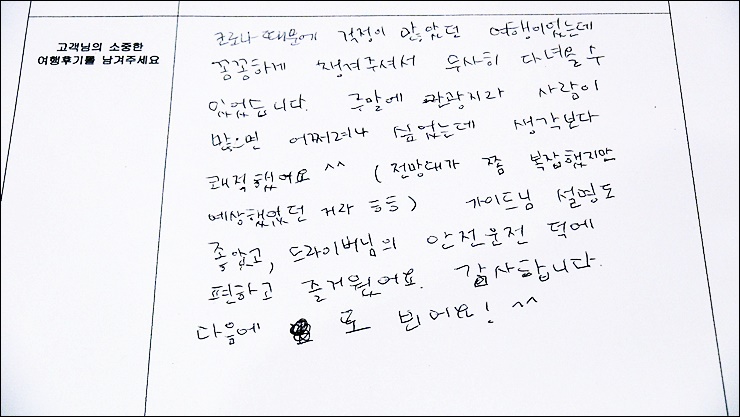 고객님의 소중한
여행후기를 남겨주세요
코로나 때문에 걱정이 많았던 여행이었는데
꼼꼼하게 챙겨주셔서 무사히 다녀올 수
있었습니다. 주말에 관광지라 사람이
많으면 어쩌려나 싶었는데 생각보다
쾌적했어요 ^^ (전망대가 쫌 복잡했지만
예상했었던 거라 흐흐) 가이드님 설명도
좋았고, 드라이버님의 안전운전 덕에
편하고 즐거웠어요. 감사합니다.
다음에 또 뵈어요! ^^